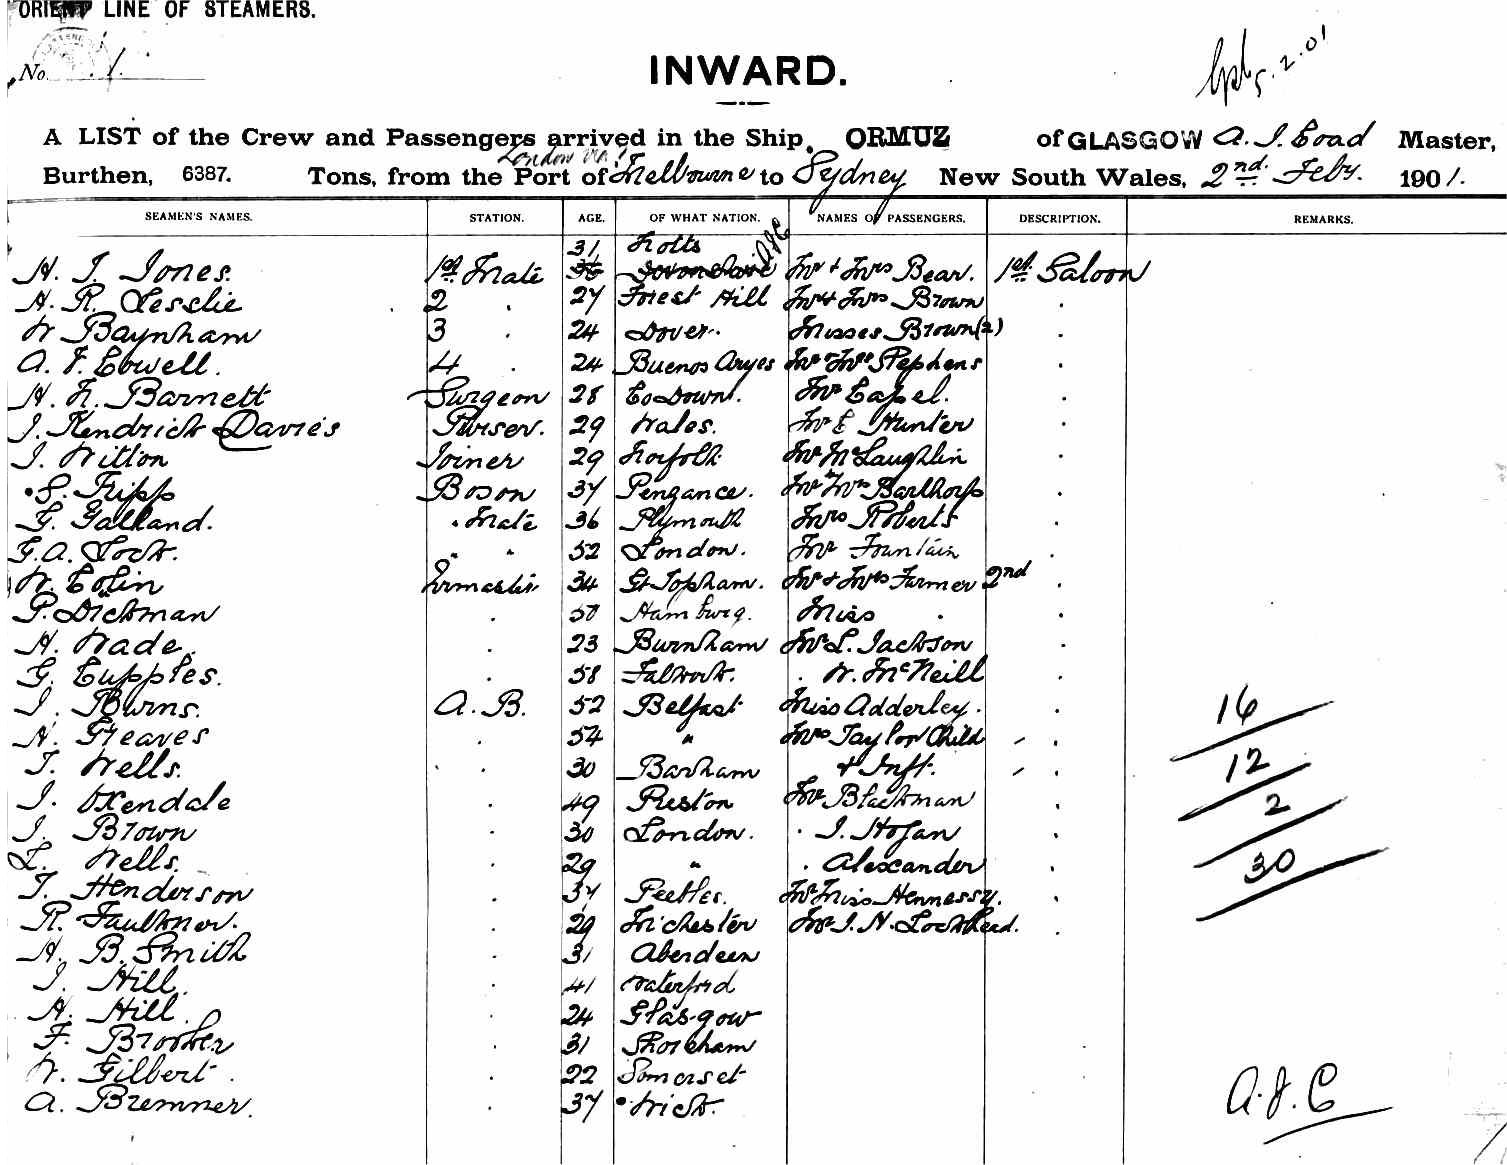 ORIENT LINE OF STEAMERS.
No. 1.
INWARD.
5.2.01
A LIST of the Crew and Passengers arrived in the Ship, ORMUZ of GLASGOW A. J. Coad Master,
London via
Burthen, 6387. Tons, from the Port of Melbourne to Sydney New South Wales, 2nd. Feby. 1901.
SEAMEN'S NAMES. STATION. AGE. OF WHAT NATION. NAMES OF PASSENGERS. DESCRIPTION. REMARKS.
31 Notts AJC
H. J. Jones. 1st Mate 36 Devonshire Mr & Mrs Bear. 1st Saloon
H. R. Leslie 2 . 27 Forest Hill Mr & Mrs Brown .
W Baynham 3 . 24 Dover. Misses Brown (2) .
A. F. Cowell. 4 . 24 Buenos Aryes Mr & Mrs Stephens .
H. N. Barnett Surgeon 28 Co Down. Mr Capel. .
J. Kendrick Davies Purser. 29 Wales. Mr E Hunter .
J. Witton Joiner 29 Norfolk Mr McLaughlin .
S. Tripp Boson 37 Penzance. Mr & Mrs Barthorp .
G. Galland. . Mate 36 Plymouth Mrs Roberts .
G. A. Lock. " " 52 London. Mr Fountain .
W. Colin 34 St Topsham. Mr & Mrs Farmer 2nd .
P. Dickman . 50 Hamburg. Miss . .
H. Wade. . 23 Burnham Mr L. Jackson .
G. Cupples. . 58 Falkirk. . W. McNeill .
J. Burns. A. B. 52 Belfast Miss Adderley. . 16
H. Greaves . 54 " Mrs Taylor Child .
T. Wells. . 30 Barham & Inft. . 12
J. Oxendale . 49 Preston Mr Blackman . 2
J. Brown . 30 London. . J. Hogan .
L. Wells. . 29 " . Alexander . 30
T. Henderson . 37 Peebles. Mr Miss Hennessy. .
R. Faulkner. . 29 Mr J. H. Lockhead. .
H. B. Smith . 31 Aberdeen
J. Hill. . 41 Waterford
H. Hill. . 24 Glasgow
F. Brooker . 31 Shoreham
W. Gilbert . . 22 Somerset
A. Bremner. . 37 Wick.
A.J.C